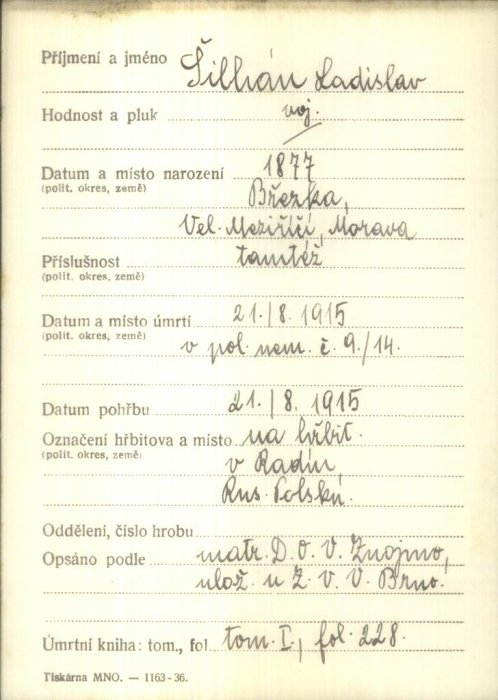 Příjmení a jméno Šillhán Ladislav
Hodnost a pluk voj.
Datum a místo narození 1877
(polit. okres, země) Březka,
Vel. Meziříčí, Morava
Příslušnost tamtéž
(polit. okres, země)
Datum a místo úmrtí 21./8. 1915
(polit. okres, země)
v pol. nem. č. 9./14.
Datum pohřbu 21./8. 1915
Označení hřbitova a místo na hřbit.
(polit. okres, země) v Radín,
Rus. Polsku.
Oddělení, číslo hrobu
Opsáno podle matr. D. O. V. Znojmo,
ulož. u Z. V. V. Brno.
Úmrtní kniha: tom., fol. tom. I., fol. 228.
Tiskárna MNO. — 1163-36.